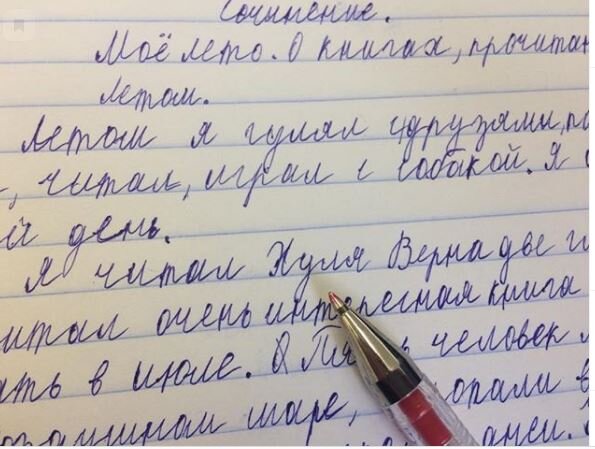 Сочинение.
Моё лето. О книгах, прочитан
летом.
Летом я гулял сдрузями, по
, читал, играл с собакой. Я
й день.
Я читал Хуля Верна две
итал очень интересная книга
ать в июле. О человек
шаре, в